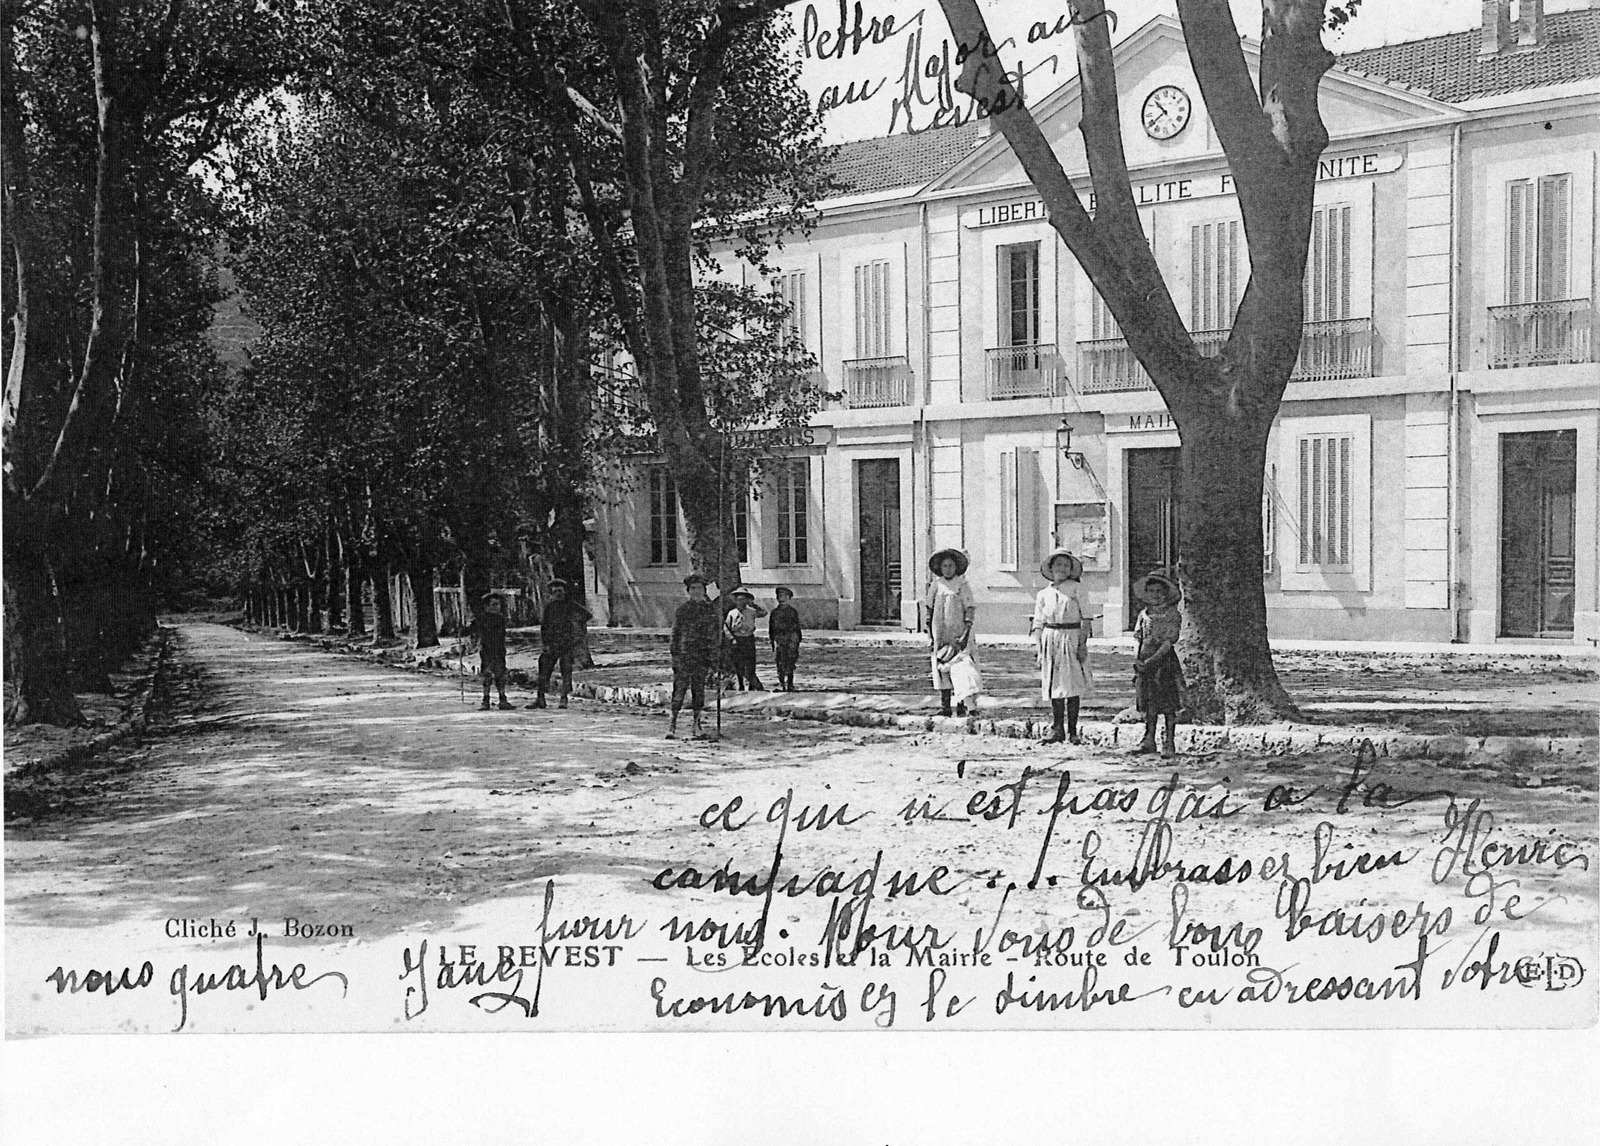 lettre
au Major au
Revest
LIBERT E LITE F NITE
MAIR
ce qui n'est pas gai a la
campagne... Embrassez bien Henri
pour nous. Pour Vous de bons baisers de
Cliché J. Bozon
LE REVEST — Les Ecoles et la Mairie - Route de Toulon
nous quatre
Economisez le timbre en adressant Votre
ELD